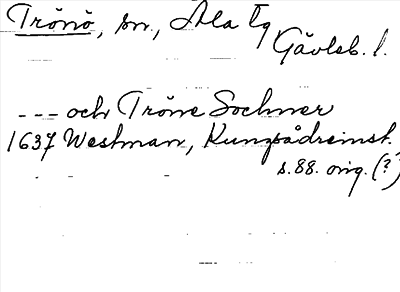 Trönö, sn., Ala tg
Gävleb. l.
--- och Tröne Sochner
1637 Westman, Kungsådreinst.
s. 88. orig. (?)